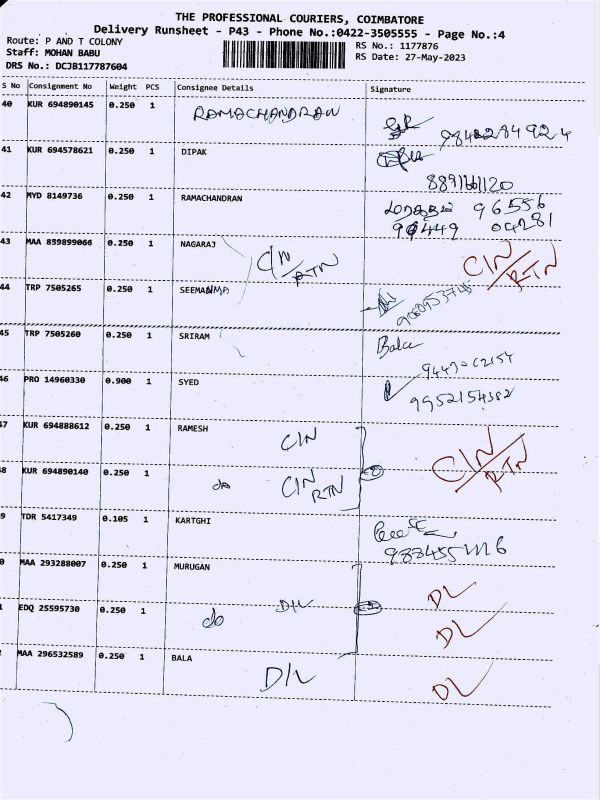 THE PROFESSIONAL COURIERS, COIMBATORE
Delivery Runsheet - P43 - Phone No.:0422-3505555 - Page No.:4
Route: P AND T COLONY
Staff: MOHAN BABU
DRS No.: DCJB117787604
RS No.: 1177876
RS Date: 27-May-2023
S No Consignment No Weight PCS Consignee Details Signature
40 KUR 694890145 0.250 1 RAMACHANDRAN
9842284924
41 KUR 694578621 0.250 1 DIPAK
8891661120
42 MYD 8149736 0.250 1 RAMACHANDRAN 96556
04281
43 MAA 859899066 0.250 1 NAGARAJ C/N RTN C/N RTN
44 TRP 7505265 0.250 1
45 TRP 7505260 0.250 1 SRIRAM Bala
46 PRO 14960330 0.900 1 SYED
9952154382
47 KUR 694888612 0.250 1 RAMESH C/N
8 KUR 694890140 0.250 1 do C/N RTN C/N RTN
9 TDR 5417349 0.105 1 KARTGHI
0 MAA 293288007 0.250 1 MURUGAN DL
1 EDQ 25595730 0.250 1 do D/L DL
2 MAA 296532589 0.250 1 BALA D/L DL